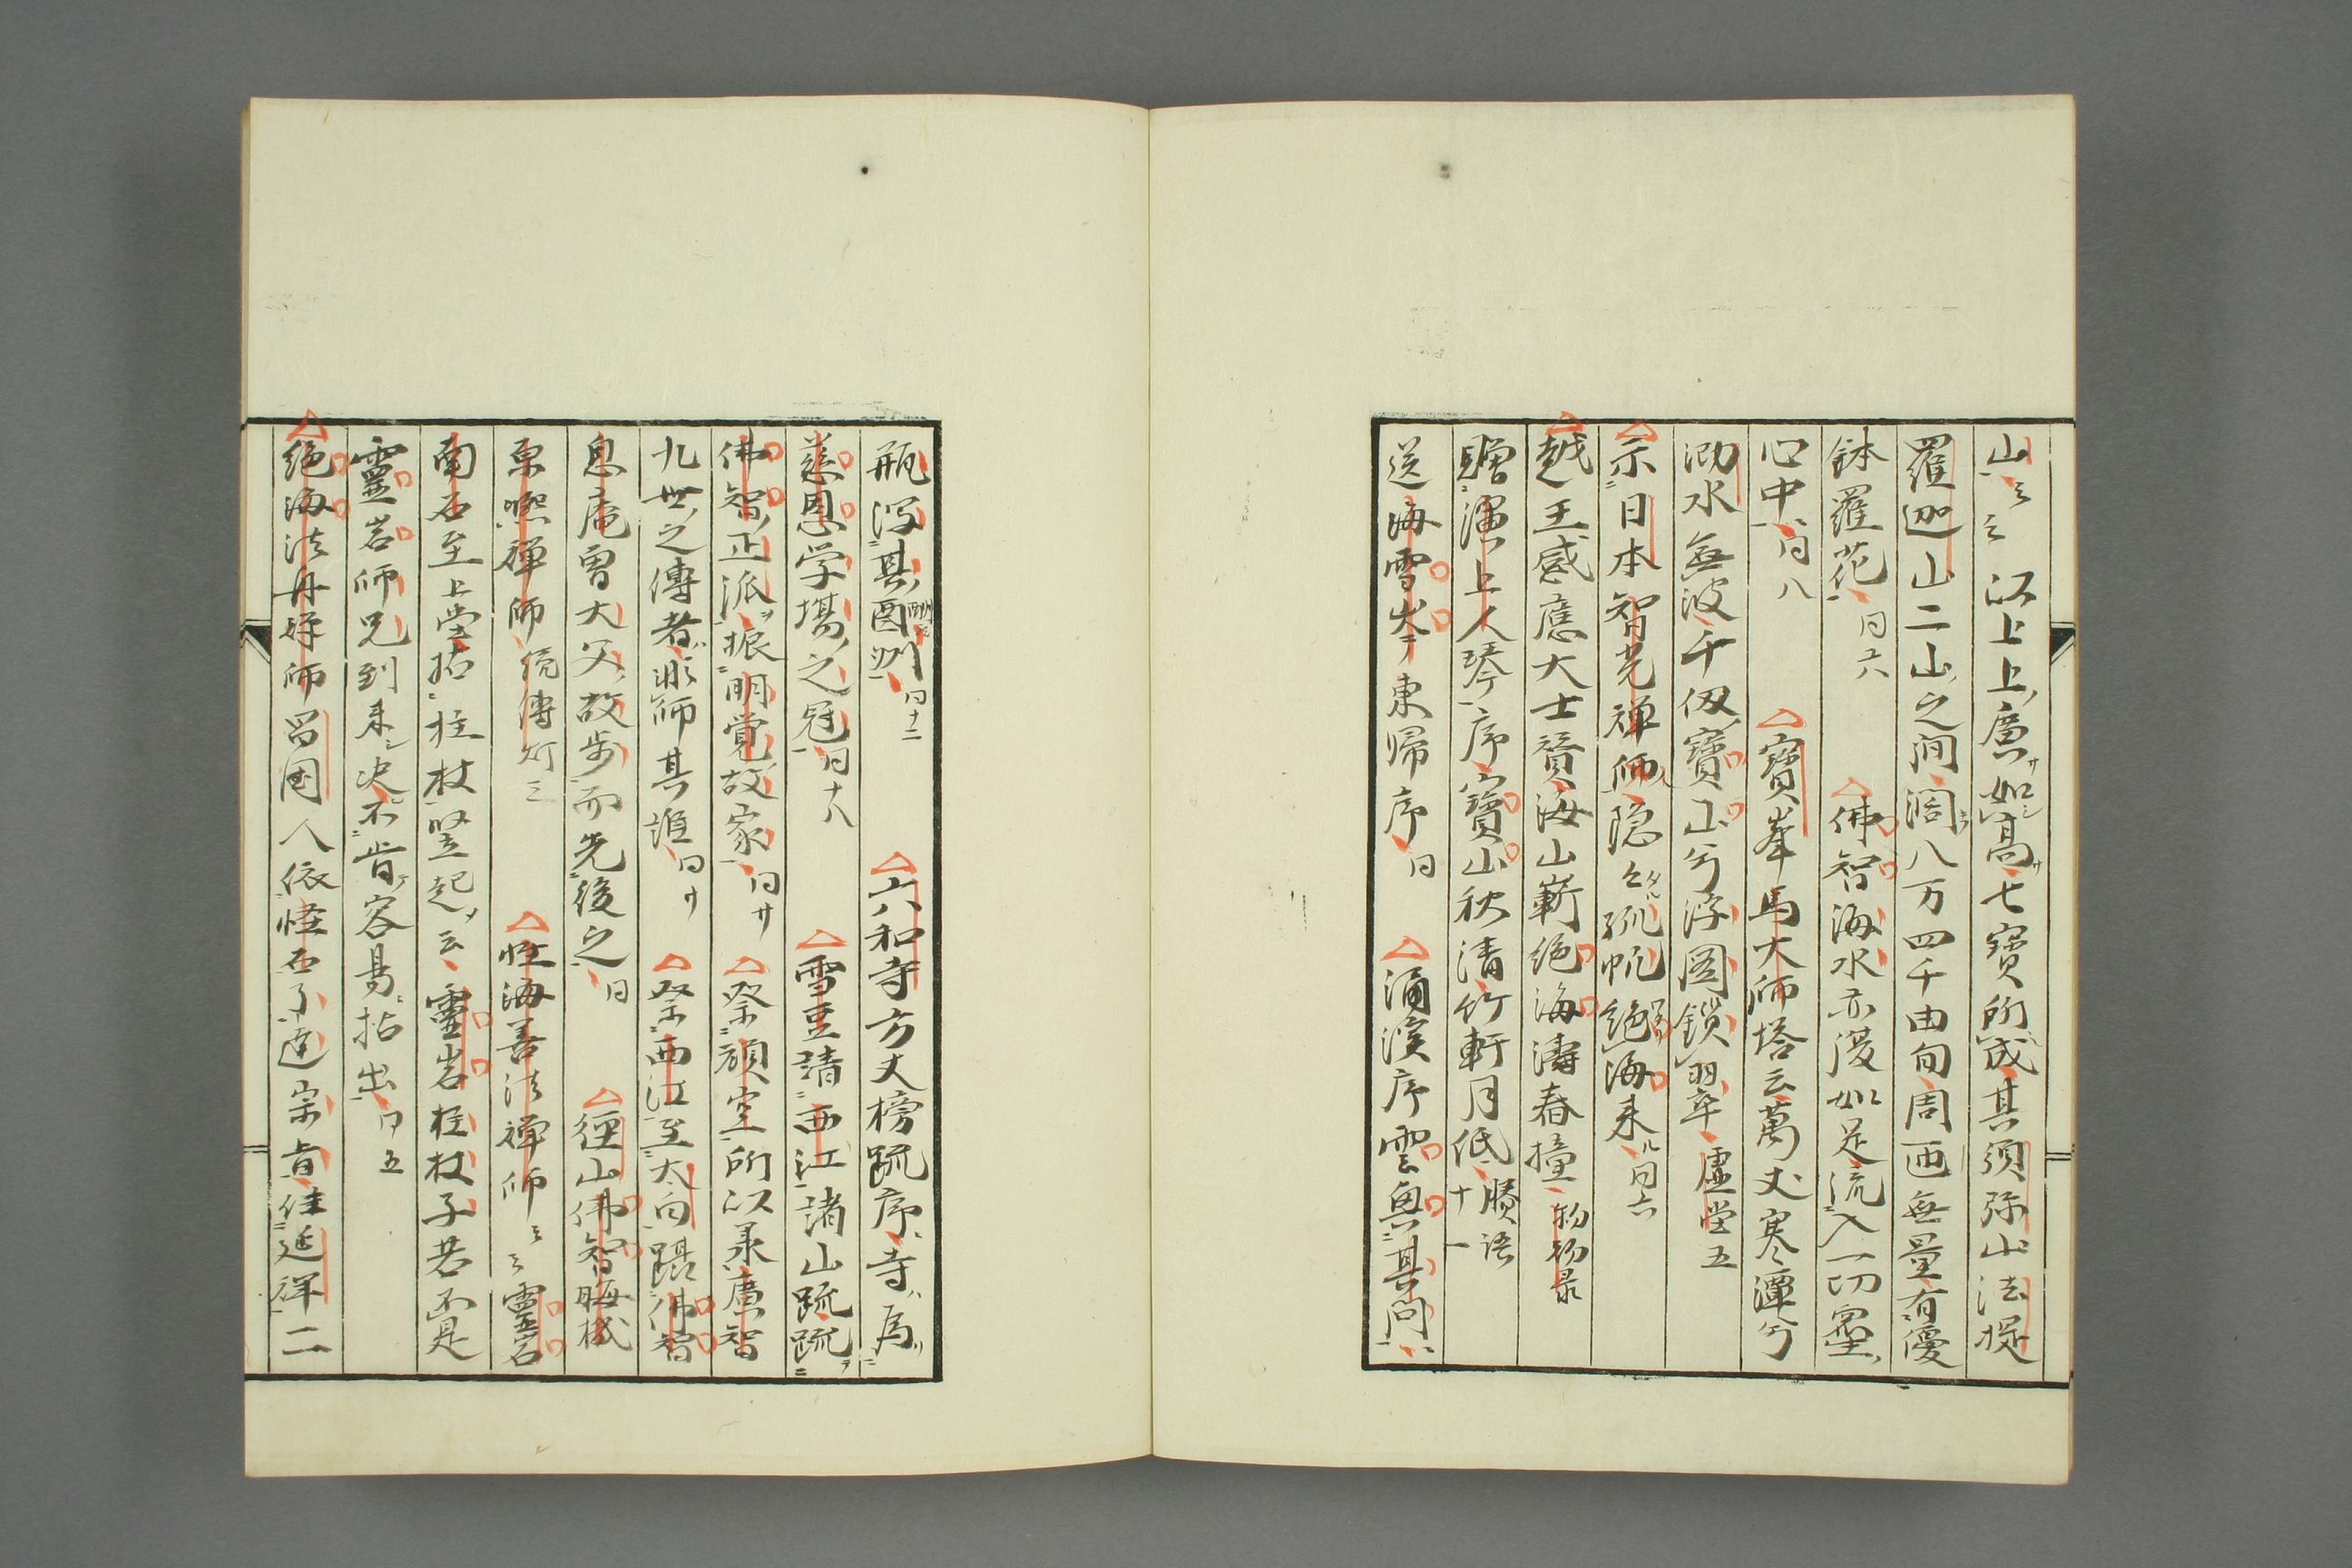 山云云以上上廣如高七寶所成其須弥山法提
羅迦山二山之间濶八万四千由旬周匝無量有優
鉢羅花同六 佛智海水亦復如是流入一切衆生
心中同八 寶峯馬大師塔云萬丈寒潭兮
湛水無波千仭寶山兮浮圖鎖翠虚堂五
示日本智光禅師隠孤帆絶海来同六
越王感應大士贊海山嶄絶海濤春撞
贈演上人琴序寶山秋清竹軒月低賸語十一
送海雪岑東帰序同 涌濱序雲与其问
瓶泻其圓洲同十二 六和寺方丈榜疏序寺為
慈恩学場之冠同十八 雪豆請西江諸山疏疏
佛智正派振明覺故家同廿 祭頑空所以录廣智
九世之傳者非師其誰同廿 祭西江至太白踞佛智
息庵曽大父故步而先後之同 徑山佛智晦機
原熈禅師続傳灯三 性海善法禅師云云靈岩
南石至上堂拈拄杖竖起云靈岩拄杖子若不是
靈岩師兄到来决不肯容易拈出同五
絶海法舟济師 国人依怪石了達宗旨住延祥二